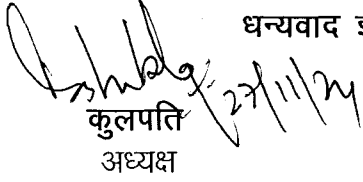 धन्यवाद
27/11/24
कुलपति
अध्यक्ष